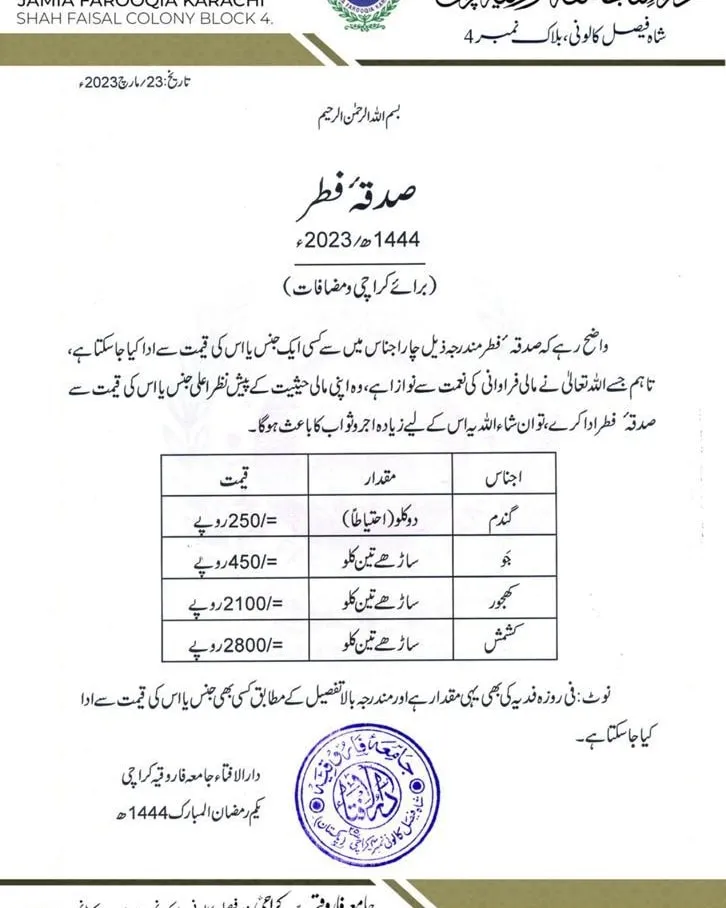 JAMIA FAROOQIA KARACHI
SHAH FAISAL COLONY BLOCK 4.
شاہ فیصل کالونی، بلاک نمبر 4
تاریخ: 23/مارچ 2023ء
بسم اللہ الرحمٰن الرحیم
صدقۂ فطر
1444ھ/2023ء
(برائے کراچی ومضافات)
واضح رہے کہ صدقۂ فطر مندرجہ ذیل چار اجناس میں سے کسی ایک جنس یا اس کی قیمت سے ادا کیا جاسکتا ہے،
تاہم جسے اللہ تعالیٰ نے مالی فراوانی کی نعمت سے نوازا ہے، وہ اپنی مالی حیثیت کے پیش نظر اعلی جنس یا اس کی قیمت سے
صدقۂ فطر ادا کرے، تو ان شاء اللہ یہ اس کے لیے زیادہ اجر وثواب کا باعث ہوگا۔
اجناس مقدار قیمت
گندم دو کلو (احتیاطاً) 250/= روپے
جَو ساڑھے تین کلو 450/= روپے
کھجور ساڑھے تین کلو 2100/= روپے
کشمش ساڑھے تین کلو 2800/= روپے
نوٹ: فی روزہ فدیہ کی بھی یہی مقدار ہے اور مندرجہ بالا تفصیل کے مطابق کسی بھی جنس یا اس کی قیمت سے ادا
کیا جاسکتا ہے۔
دارالافتاء جامعہ فاروقیہ کراچی
یکم رمضان المبارک 1444ھ
جامعہ فاروقیہ
دارالافتاء
شاہ فیصل کالونی نمبر ۴ کراچی ۲۵ (پاکستان)